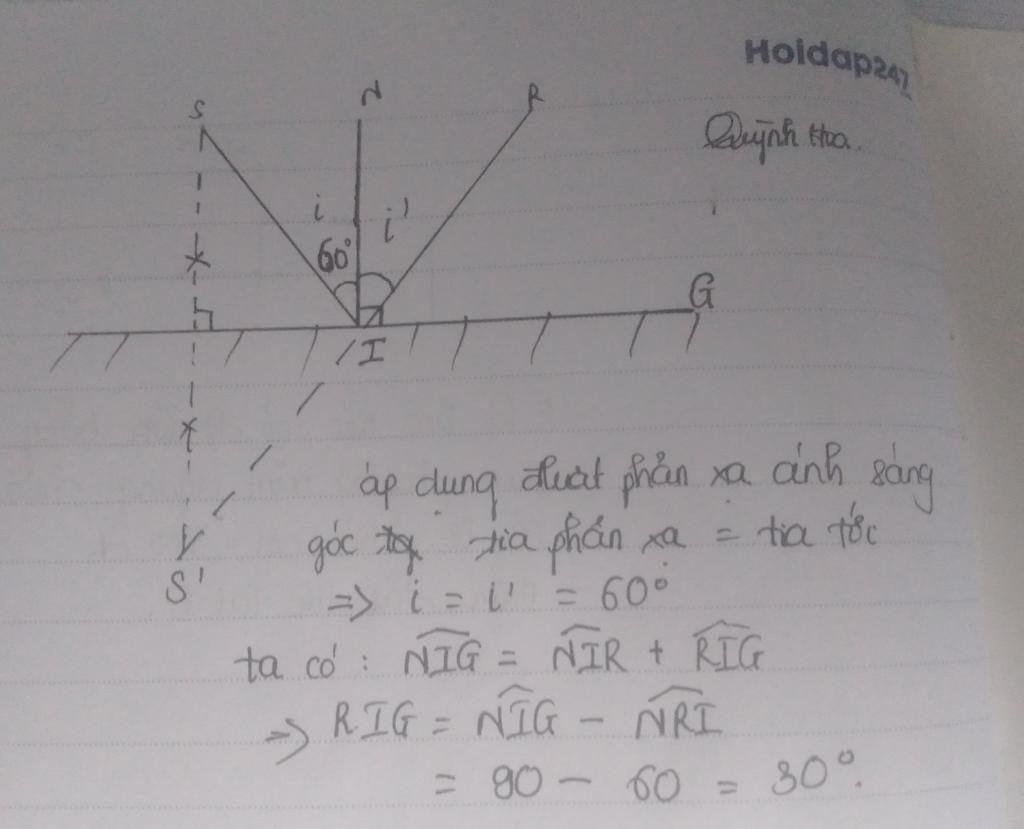 Hoidap247
Quỳnh Hoa.
S N R
i i'
60°
G
I
S'
áp dụng đluật phản xạ ánh sáng
góc tia phản xạ = tia tới
=> i = i' = 60°
ta có : NIG = NIR + RIG
=> RIG = NIG - NRI
= 90 - 60 = 30°.